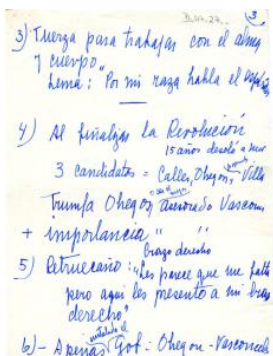 3) Fuerza para trabajar con el alma
y cuerpo
Lema: "Por mi raza habla el espíritu
4) Al finalizar la Revolución
15 años desoló a
3 candidatos = Calles, Obregón, Villa
Triunfa Obregón asesorado Vasconc
+ importancia " "
brazo derecho
5) Retruécano: "Les parece que me falta
pero aquí les presento a mi brazo
derecho"
6) - Apenas Gob: Obregon - Vasconcelos